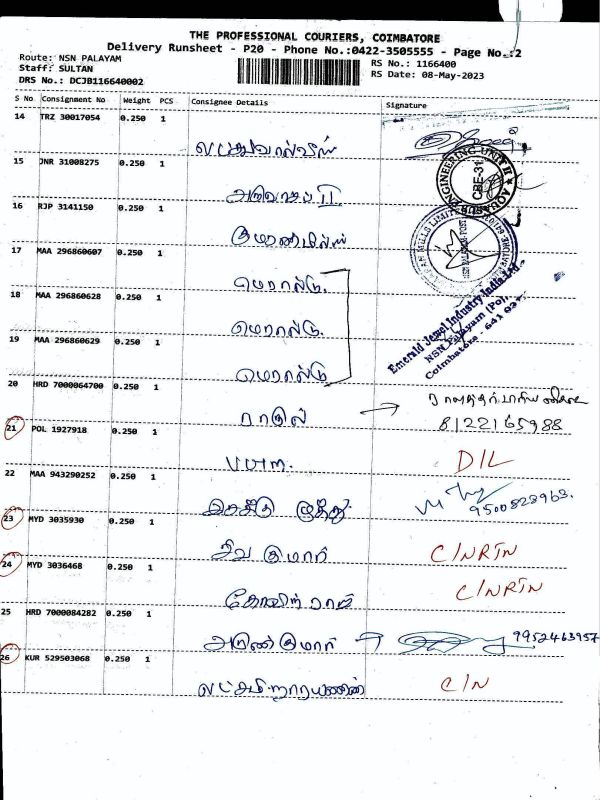 THE PROFESSIONAL COURIERS, COIMBATORE
Delivery Runsheet - P20 - Phone No.:0422-3505555 - Page No.:2
Route: NSN PALAYAM
Staff: SULTAN
DRS No.: DCJB116640002
RS No.: 1166400
RS Date: 08-May-2023
S No Consignment No Weight PCS Consignee Details Signature
14 TRZ 30017054 0.250 1
15 JNR 31008275 0.250 1
ENGINEERING UNIT II
CBE-31
16 RJP 3141150 0.250 1
குமரன்மில்ஸ்
17 MAA 296860607 0.250 1
எமரால்டு.
18 MAA 296860628 0.250 1
எமரால்டு.
Emerald Jewel Industry India Ltd.,
NSN Palayam (Po),
Coimbatore - 641 031
19 MAA 296860629 0.250 1
எமரால்டு
20 HRD 7000064700 0.250 1
ராகுல் →
8122165988
21 POL 1927918 0.250 1
D/L
22 MAA 943290252 0.250 1
இசக்கி முத்து
9500823963.
23 MYD 3035930 0.250 1
சிவ குமார் C/NRTN
24 MYD 3036468 0.250 1
கோவிந் ராஜ் C/NRTN
25 HRD 7000084282 0.250 1
அருண்குமார் → 9952463957
26 KUR 529503068 0.250 1
லட்சுமிநாராயணன் C/N